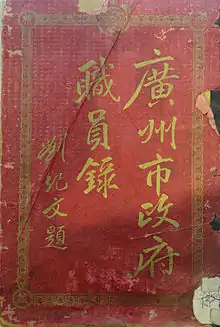 廣州市政府
職員錄
劉紀文題